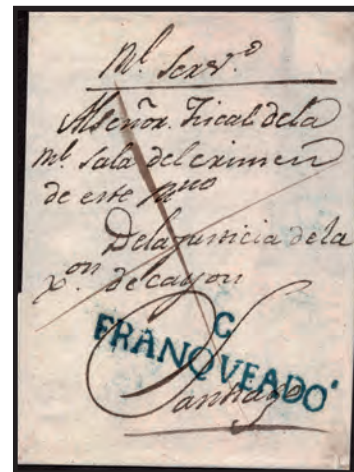 Rl Serv.o
Al señor. Fiscal de la
Rl Sala del crimen
de este Rno
De la justicia de la
xon de cayon
G
FRANQVEADO
Santiago